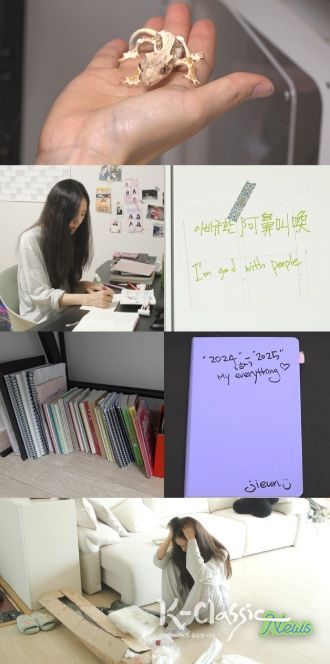 아비규환 阿鼻叫喚
I'm good with people
"2024" - "2025"
My everything♡
jieun
K-Classic News